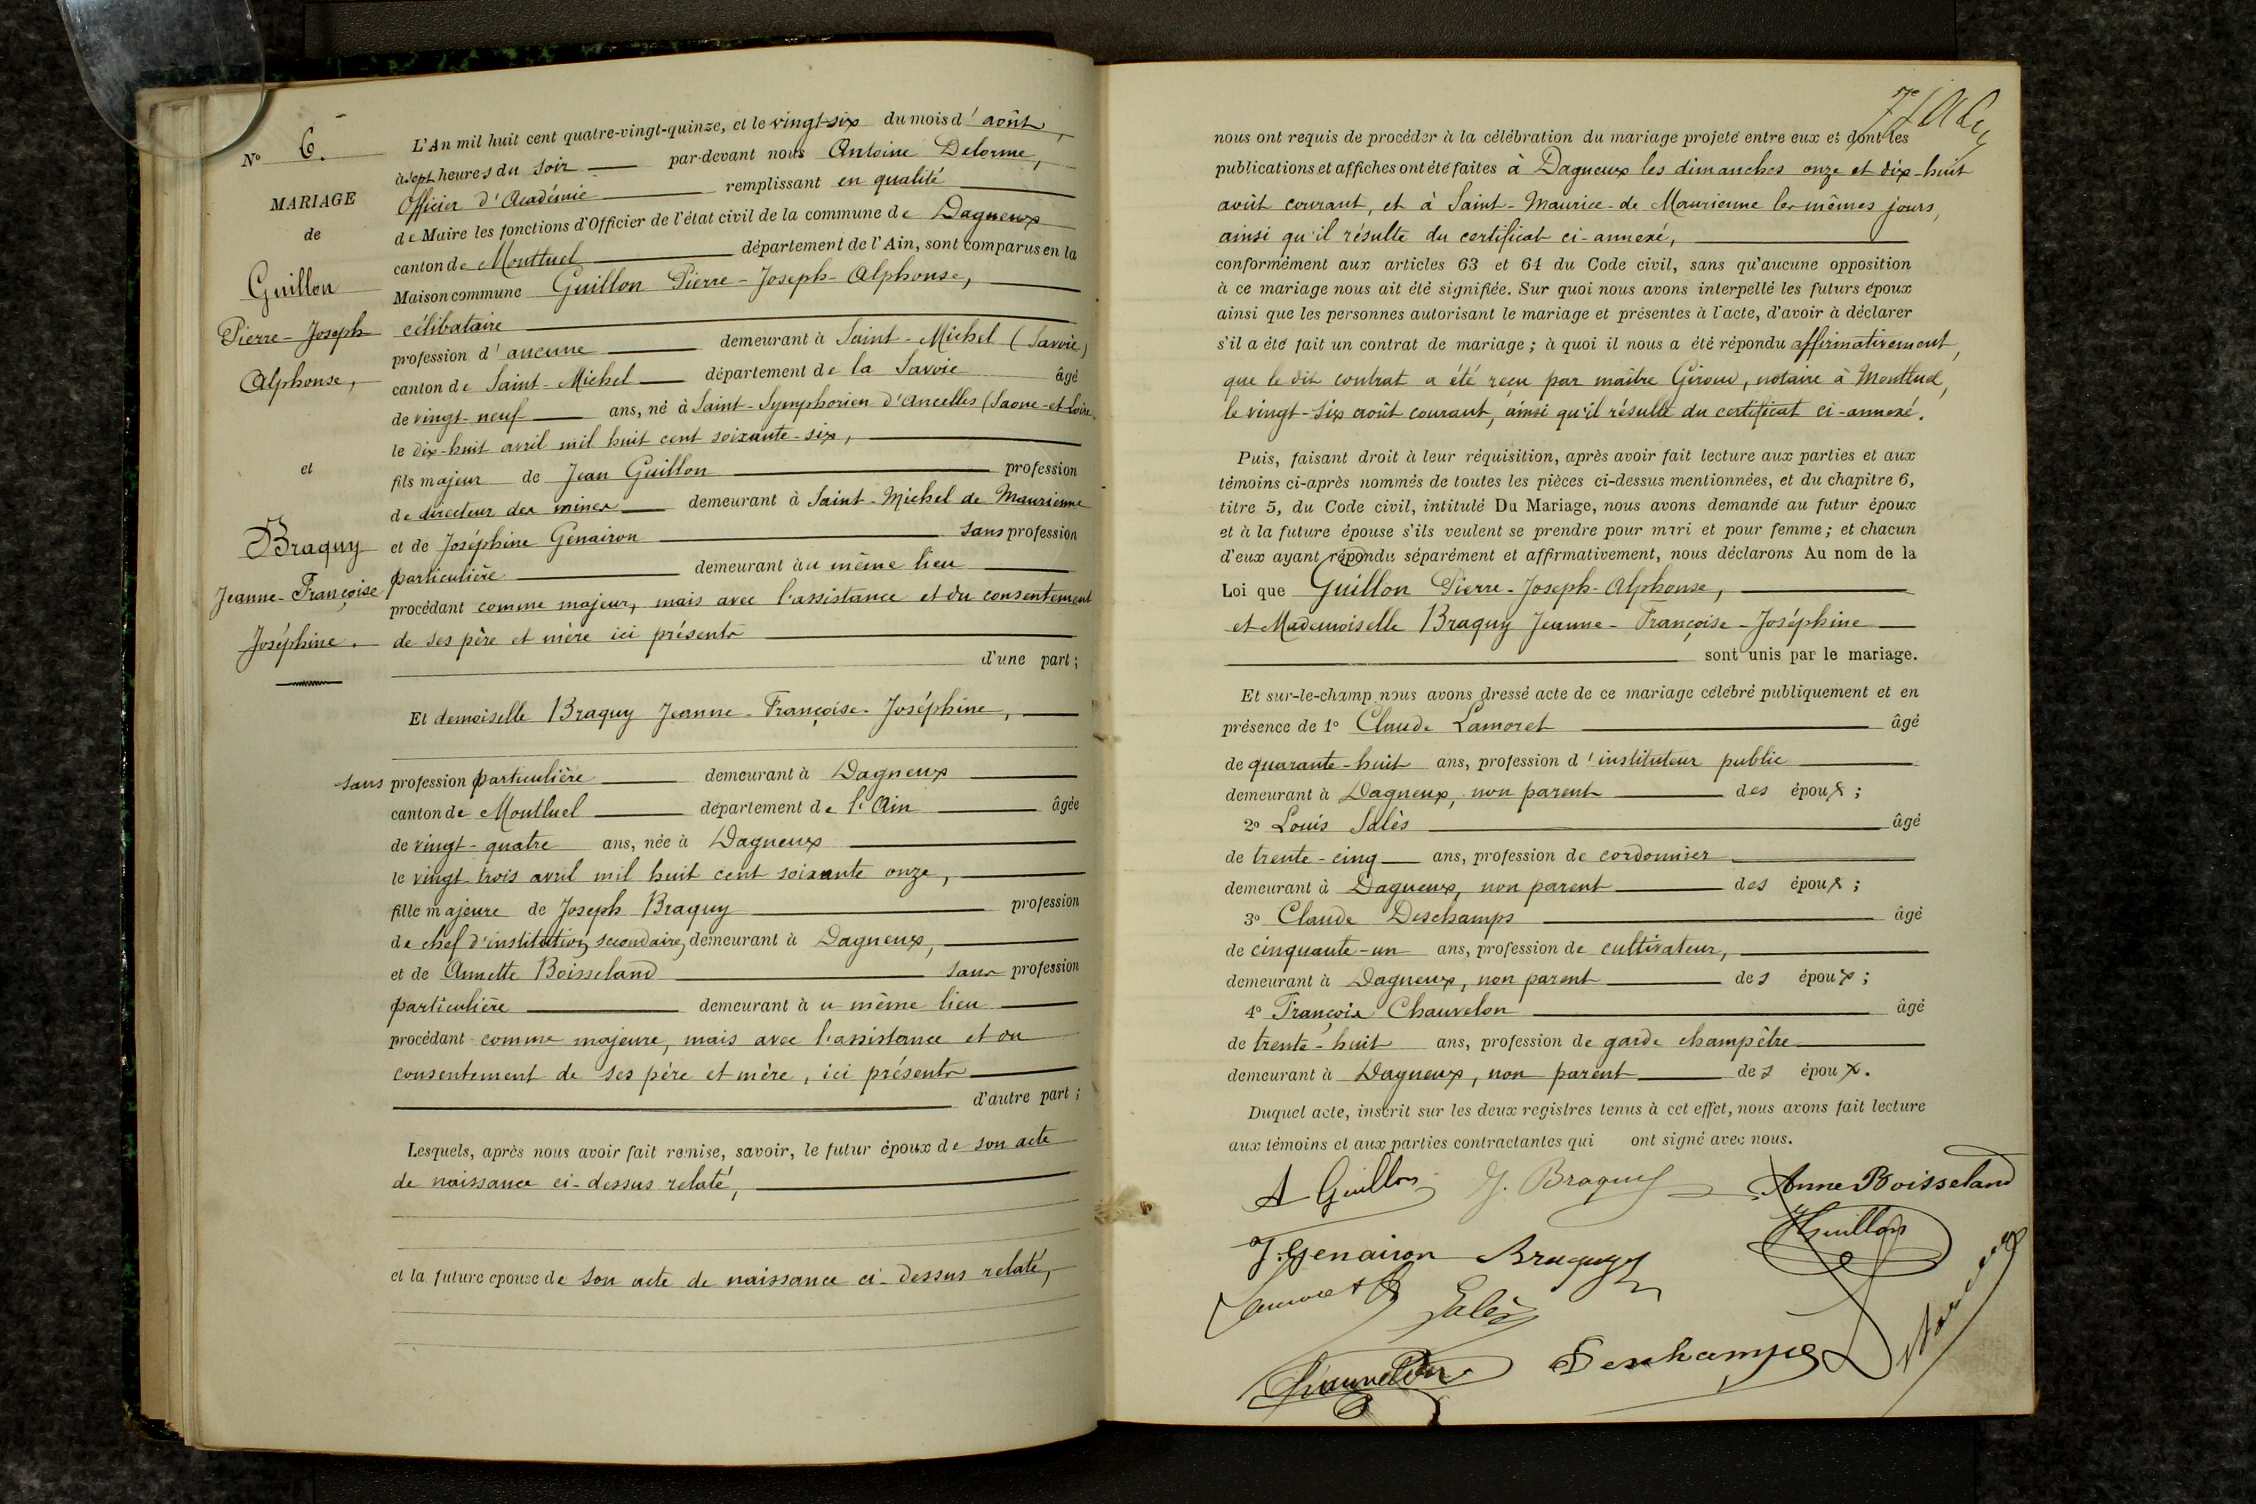 N° 6.
MARIAGE
de
Guillon
Pierre-Joseph
Alphonse,
et
Braquy
Jeanne-Françoise
Joséphine.
L'An mil huit cent quatre-vingt-quinze, et le vingt-six du mois d'août,
à sept heures du soir par-devant nous Antoine Delorme,
Officier d'Académie remplissant en qualité
de Maire les fonctions d'Officier de l'état civil de la commune de Dagneux
canton de Montluel département de l'Ain, sont comparus en la
Maison commune Guillon Pierre-Joseph-Alphonse,
célibataire
profession d'aucune demeurant à Saint-Michel (Savoie)
canton de Saint-Michel département de la Savoie âgé
de vingt-neuf ans, né à Saint-Symphorien d'Ancelles (Saone-et-Loire
le dix-huit avril mil huit cent soixante-six,
fils majeur de Jean Guillon profession
de directeur des mines demeurant à Saint-Michel de Maurienne
et de Joséphine Génairon sans profession
particulière demeurant au même lieu
procédant comme majeur, mais avec l'assistance et du consentement
de ses père et mère ici présents
d'une part;
Et demoiselle Braquy Jeanne-Françoise-Joséphine,
sans profession particulière demeurant à Dagneux
canton de Montluel département de l'Ain âgée
de vingt-quatre ans, née à Dagneux
le vingt trois avril mil huit cent soixante onze,
fille majeure de Joseph Braquy profession
de chef d'institution secondaire, demeurant à Dagneux,
et de Annette Boisseland sans profession
particulière demeurant à u même lieu
procédant comme majeure, mais avec l'assistance et du
consentement de ses père et mère, ici présents
d'autre part;
Lesquels, après nous avoir fait remise, savoir, le futur époux de son acte
de naissance ci-dessus relaté,
et la future épouse de son acte de naissance ci-dessus relaté,
nous ont requis de procéder à la célébration du mariage projeté entre eux et dont les
publications et affiches ont été faites à Dagneux les dimanches onze et dix-huit
août courant, et à Saint-Maurice-de Maurienne les mêmes jours,
ainsi qu'il résulte du certificat ci-annexé,
conformément aux articles 63 et 64 du Code civil, sans qu'aucune opposition
à ce mariage nous ait été signifiée. Sur quoi nous avons interpellé les futurs époux
ainsi que les personnes autorisant le mariage et présentes à l'acte, d'avoir à déclarer
s'il a été fait un contrat de mariage; à quoi il nous a été répondu affirmativement,
que le dit contrat a été reçu par maître Giroud, notaire à Montluel,
le vingt-six août courant, ainsi qu'il résulte du certificat ci-annexé.
Puis, faisant droit à leur réquisition, après avoir fait lecture aux parties et aux
témoins ci-après nommés de toutes les pièces ci-dessus mentionnées, et du chapitre 6,
titre 5, du Code civil, intitulé Du Mariage, nous avons demandé au futur époux
et à la future épouse s'ils veulent se prendre pour mari et pour femme; et chacun
d'eux ayant répondu séparément et affirmativement, nous déclarons Au nom de la
Loi que Guillon Pierre-Joseph-Alphonse,
et Mademoiselle Braquy Jeanne-Françoise-Joséphine
sont unis par le mariage.
Et sur-le-champ nous avons dressé acte de ce mariage célébré publiquement et en
présence de 1° Claude Lamoret âgé
de quarante-huit ans, profession d'instituteur public
demeurant à Dagneux, non parent des époux;
2° Louis Salès âgé
de trente-cinq ans, profession de cordonnier
demeurant à Dagneux, non parent des époux;
3° Claude Deschamps âgé
de cinquante-un ans, profession de cultivateur,
demeurant à Dagneux, non parent des époux;
4° François Chauvelon âgé
de trente-huit ans, profession de garde champêtre
demeurant à Dagneux, non parent des époux.
Duquel acte, inscrit sur les deux registres tenus à cet effet, nous avons fait lecture
aux témoins et aux parties contractantes qui ont signé avec nous.
A Guillon J. Braquy Anne Boisseland
J. Genairon Braquy JGuillon
Lamoret Salès
Chauvelon Deschamps